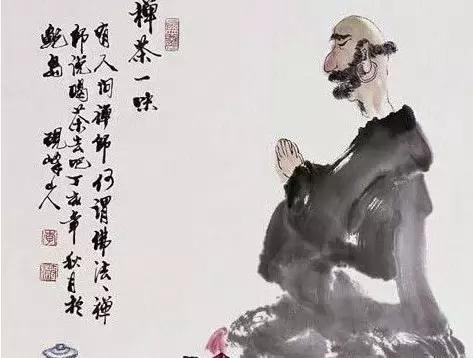 禪茶一味
有人问禪师何谓佛法、禪
师说喝茶去吧丁亥年秋月於
鲍岛 砚峰山人